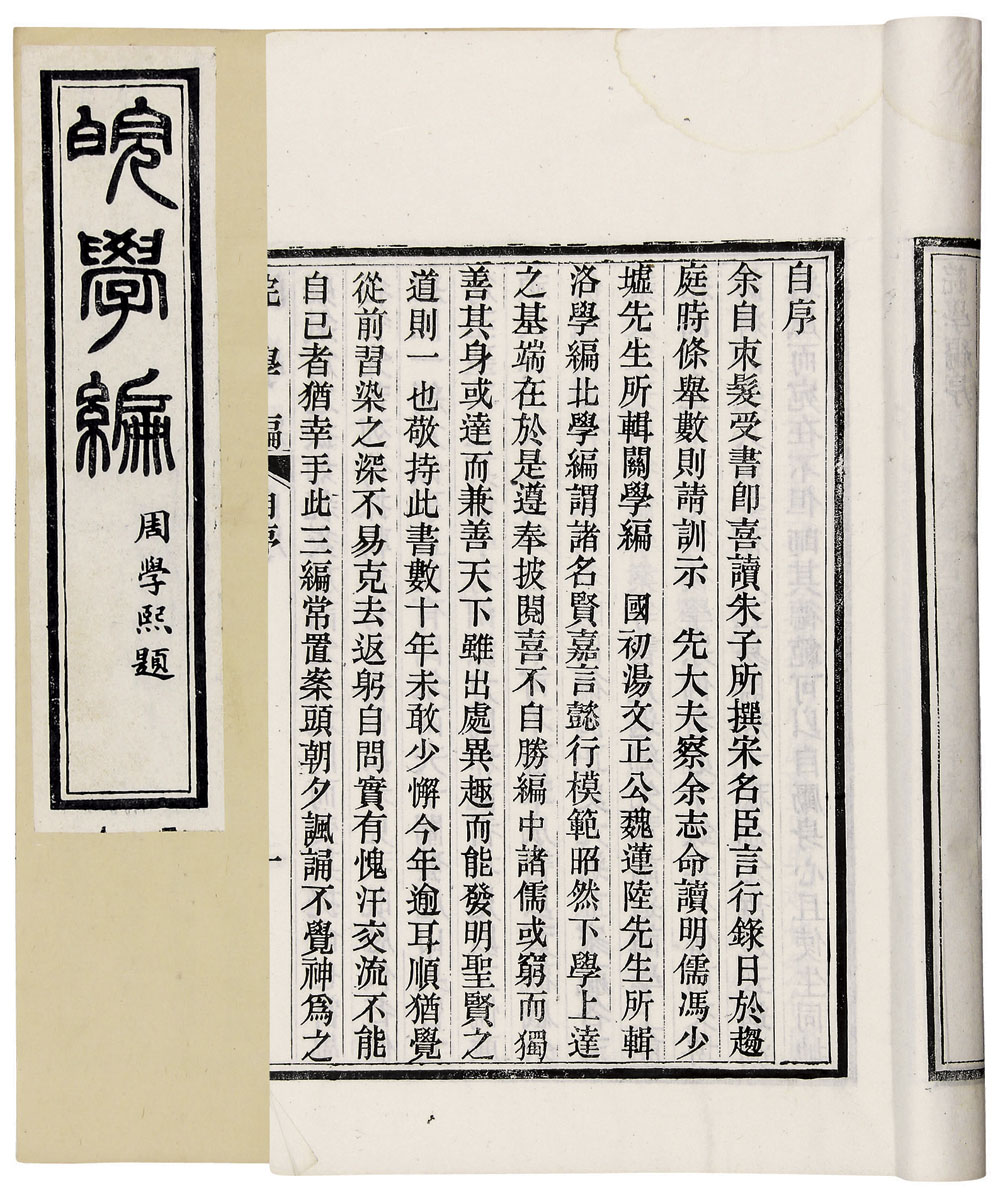 皖學編
周學熙題
自序
余自束髮受書卽喜讀朱子所撰宋名臣言行錄日於趨
庭時條舉數則請訓示　先大夫察余志命讀明儒馮少
墟先生所輯關學編　國初湯文正公魏蓮陸先生所輯
洛學編北學編謂諸名賢嘉言懿行模範昭然下學上達
之基端在於是遵奉披閱喜不自勝編中諸儒或窮而獨
善其身或達而兼善天下雖出處異趣而能發明聖賢之
道則一也敬持此書數十年未敢少懈今年逾耳順猶覺
從前習染之深不易克去返躬自問實有愧汗交流不能
自已者猶幸手此三編常置案頭朝夕諷誦不覺神爲之
皖學編　自序　一